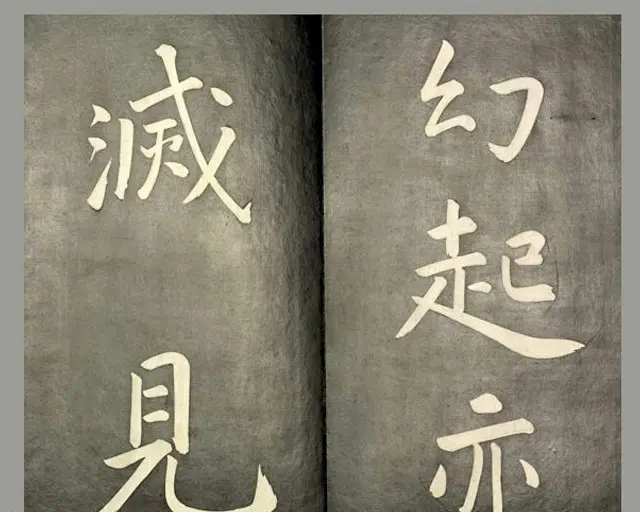 幻起亦
滅見